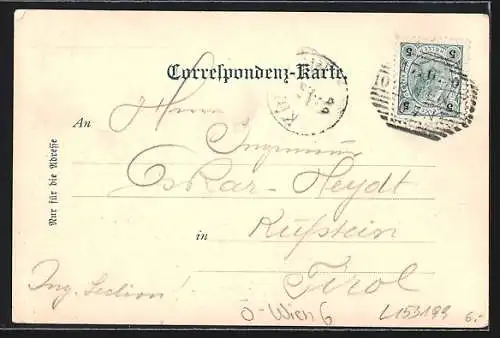 Correspondenz-Karte.
An
Herrn
Ingenieur
Oskar Heydt
in Kufstein
Tirol
Nur für die Adresse
Ing. Section!
O-Wien 6
L153199
6.-
5 5
5 5